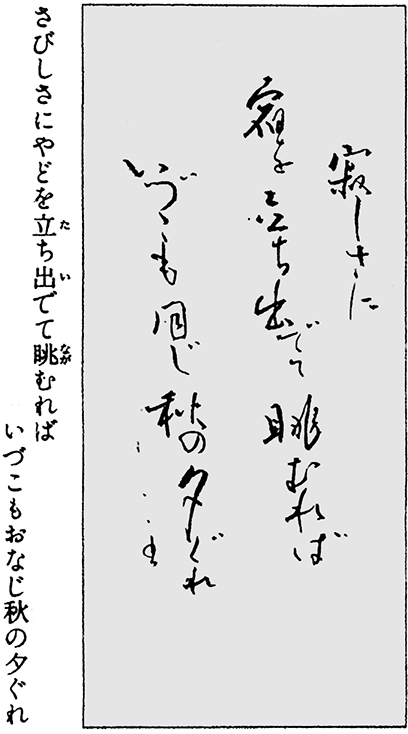 寂しさに
宿を立ち出でて眺むれば
いづこも同じ秋の夕ぐれ
た い なが
さびしさにやどを立ち出でて眺むれば
いづこもおなじ秋の夕ぐれ